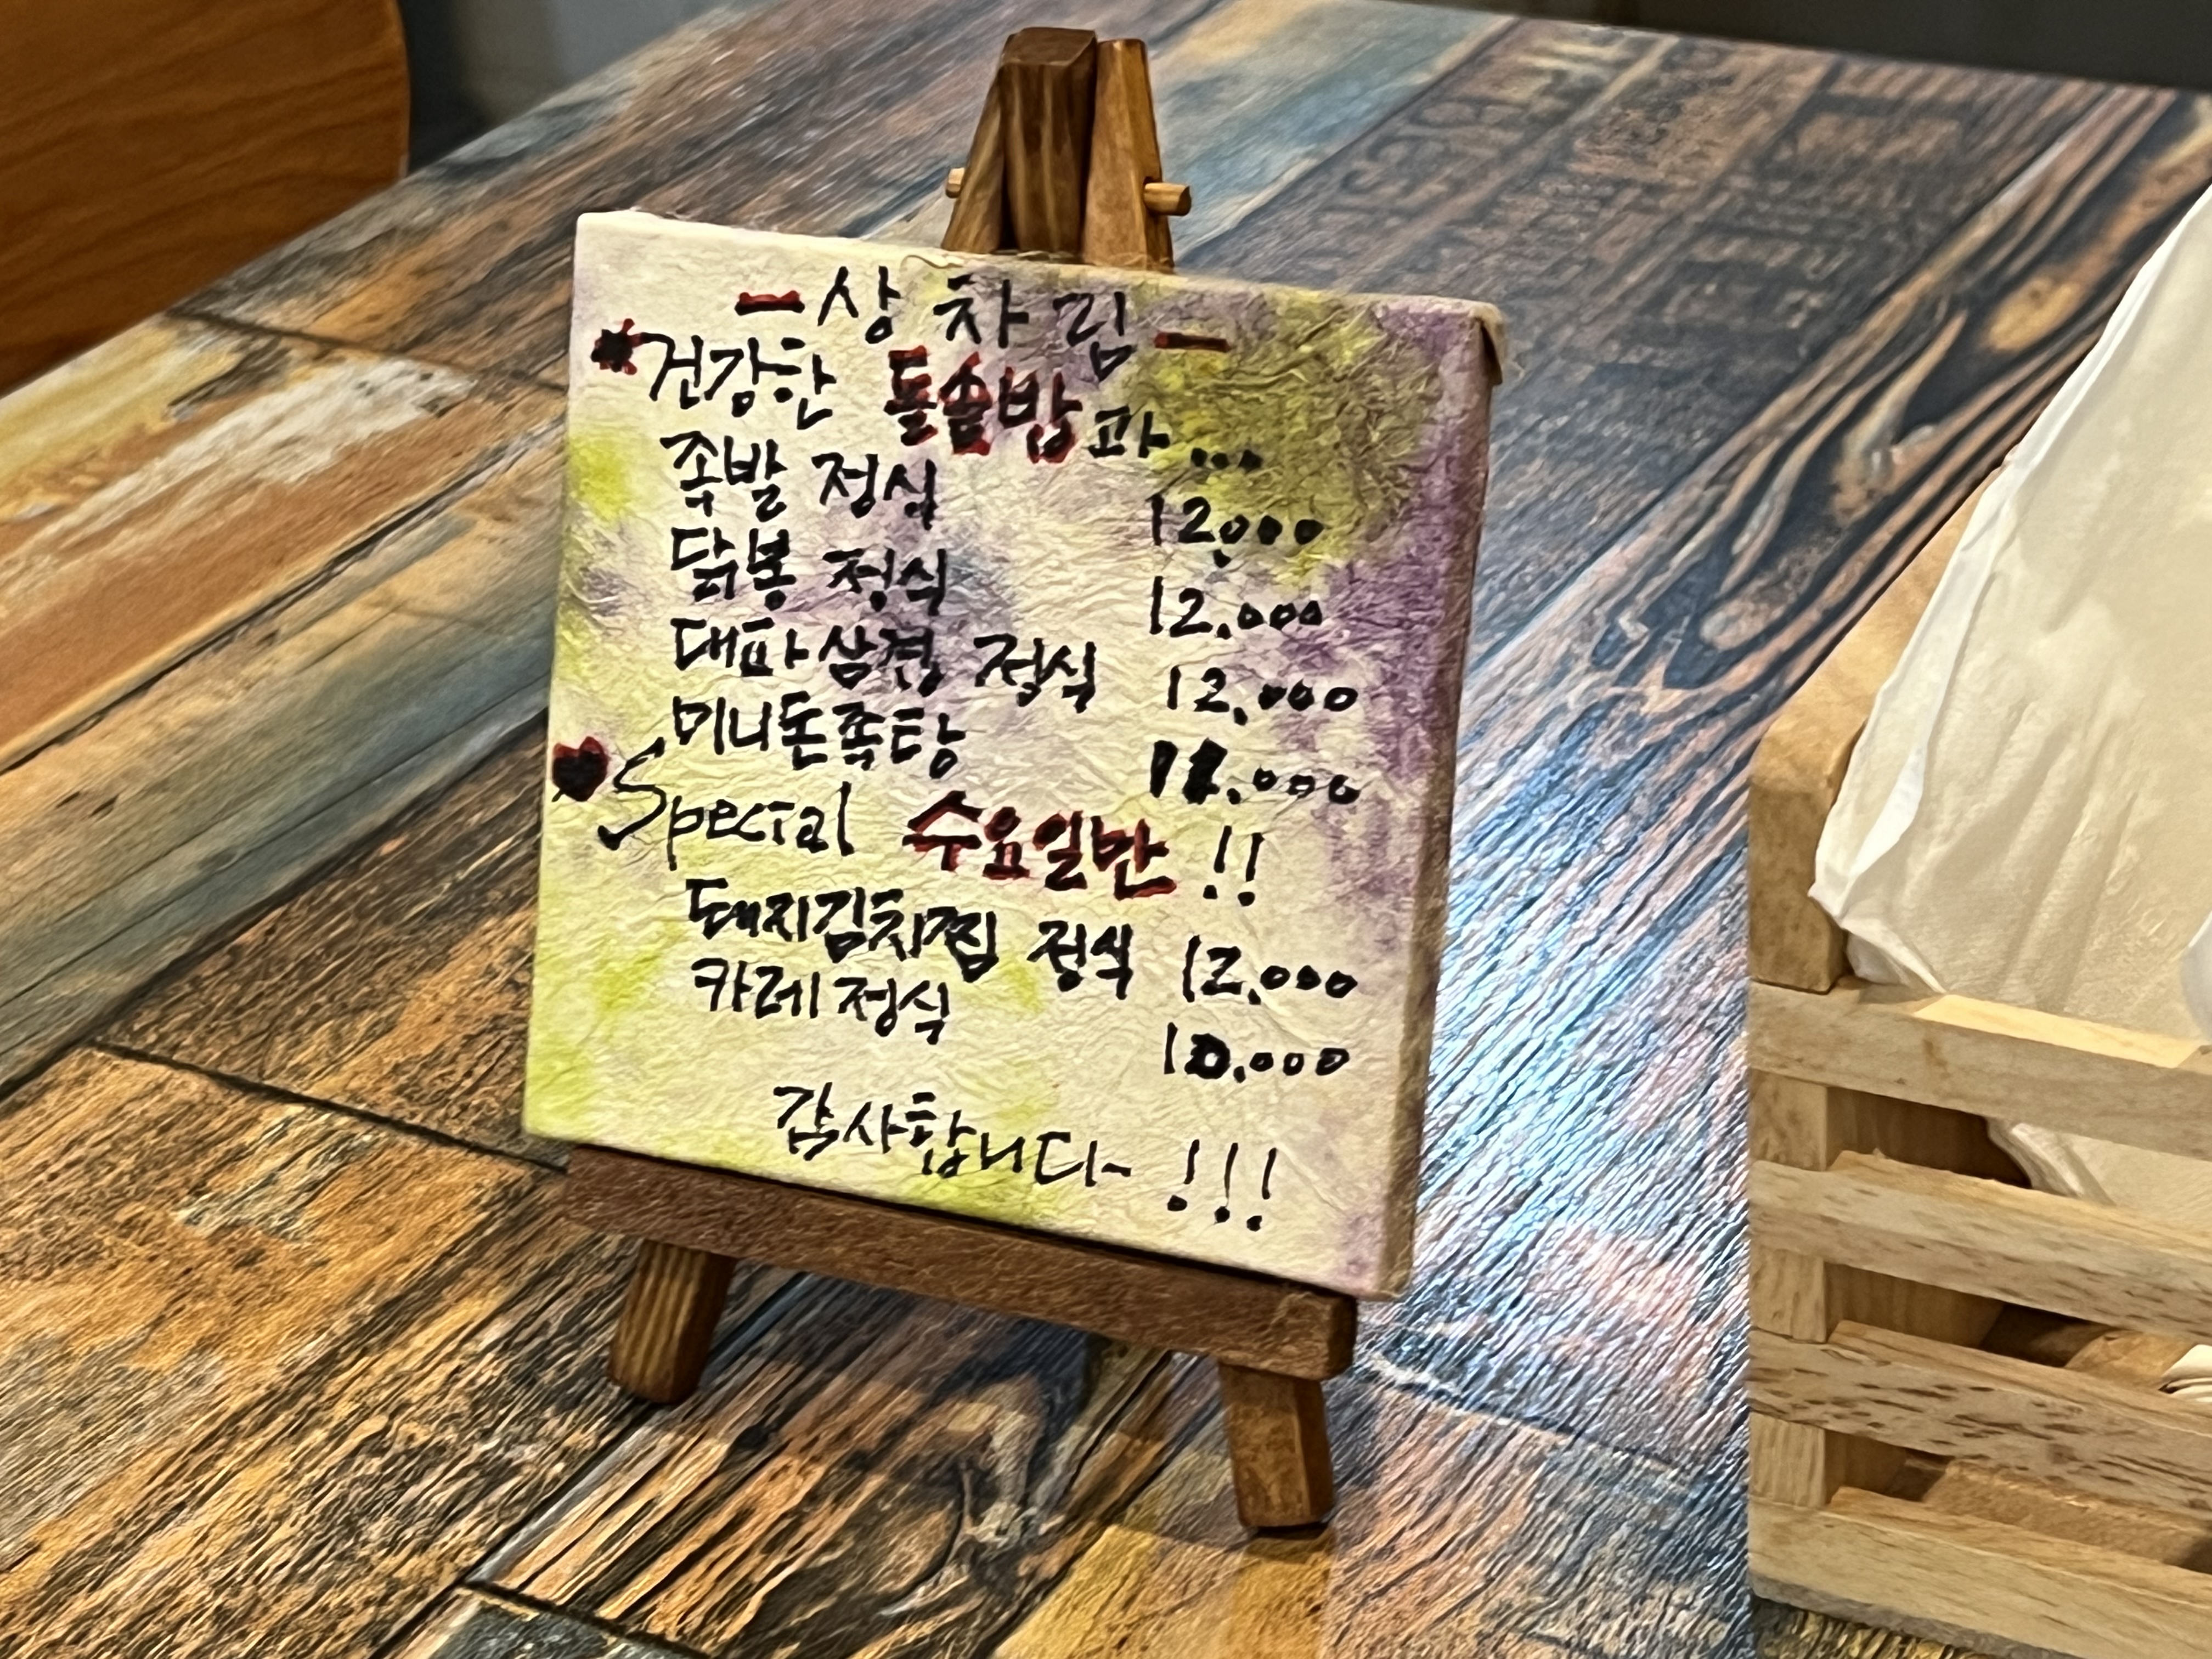 - 상 차 림 -
건강한 돌솥밥과...
족발 정식 12,000
닭봉 정식 12.000
대파삼겹 정식 12.000
미니돈족탕 11.000
Special 수요일반!!
돼지김치찜 정식 12.000
카레정식 10.000
감사합니다~!!!